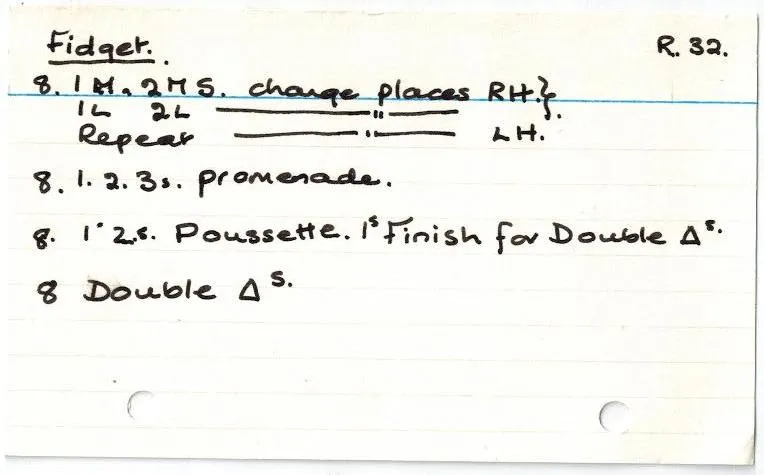 Fidget. R. 32.
8. 1M. 2MS. change places RH.}
1L 2L ——— " ——— }.
Repeat ——— " ——— LH.
8. 1. 2. 3s. promenade.
8. 1 * 2.s. Poussette. 1s Finish for Double Δs.
8 Double Δs.